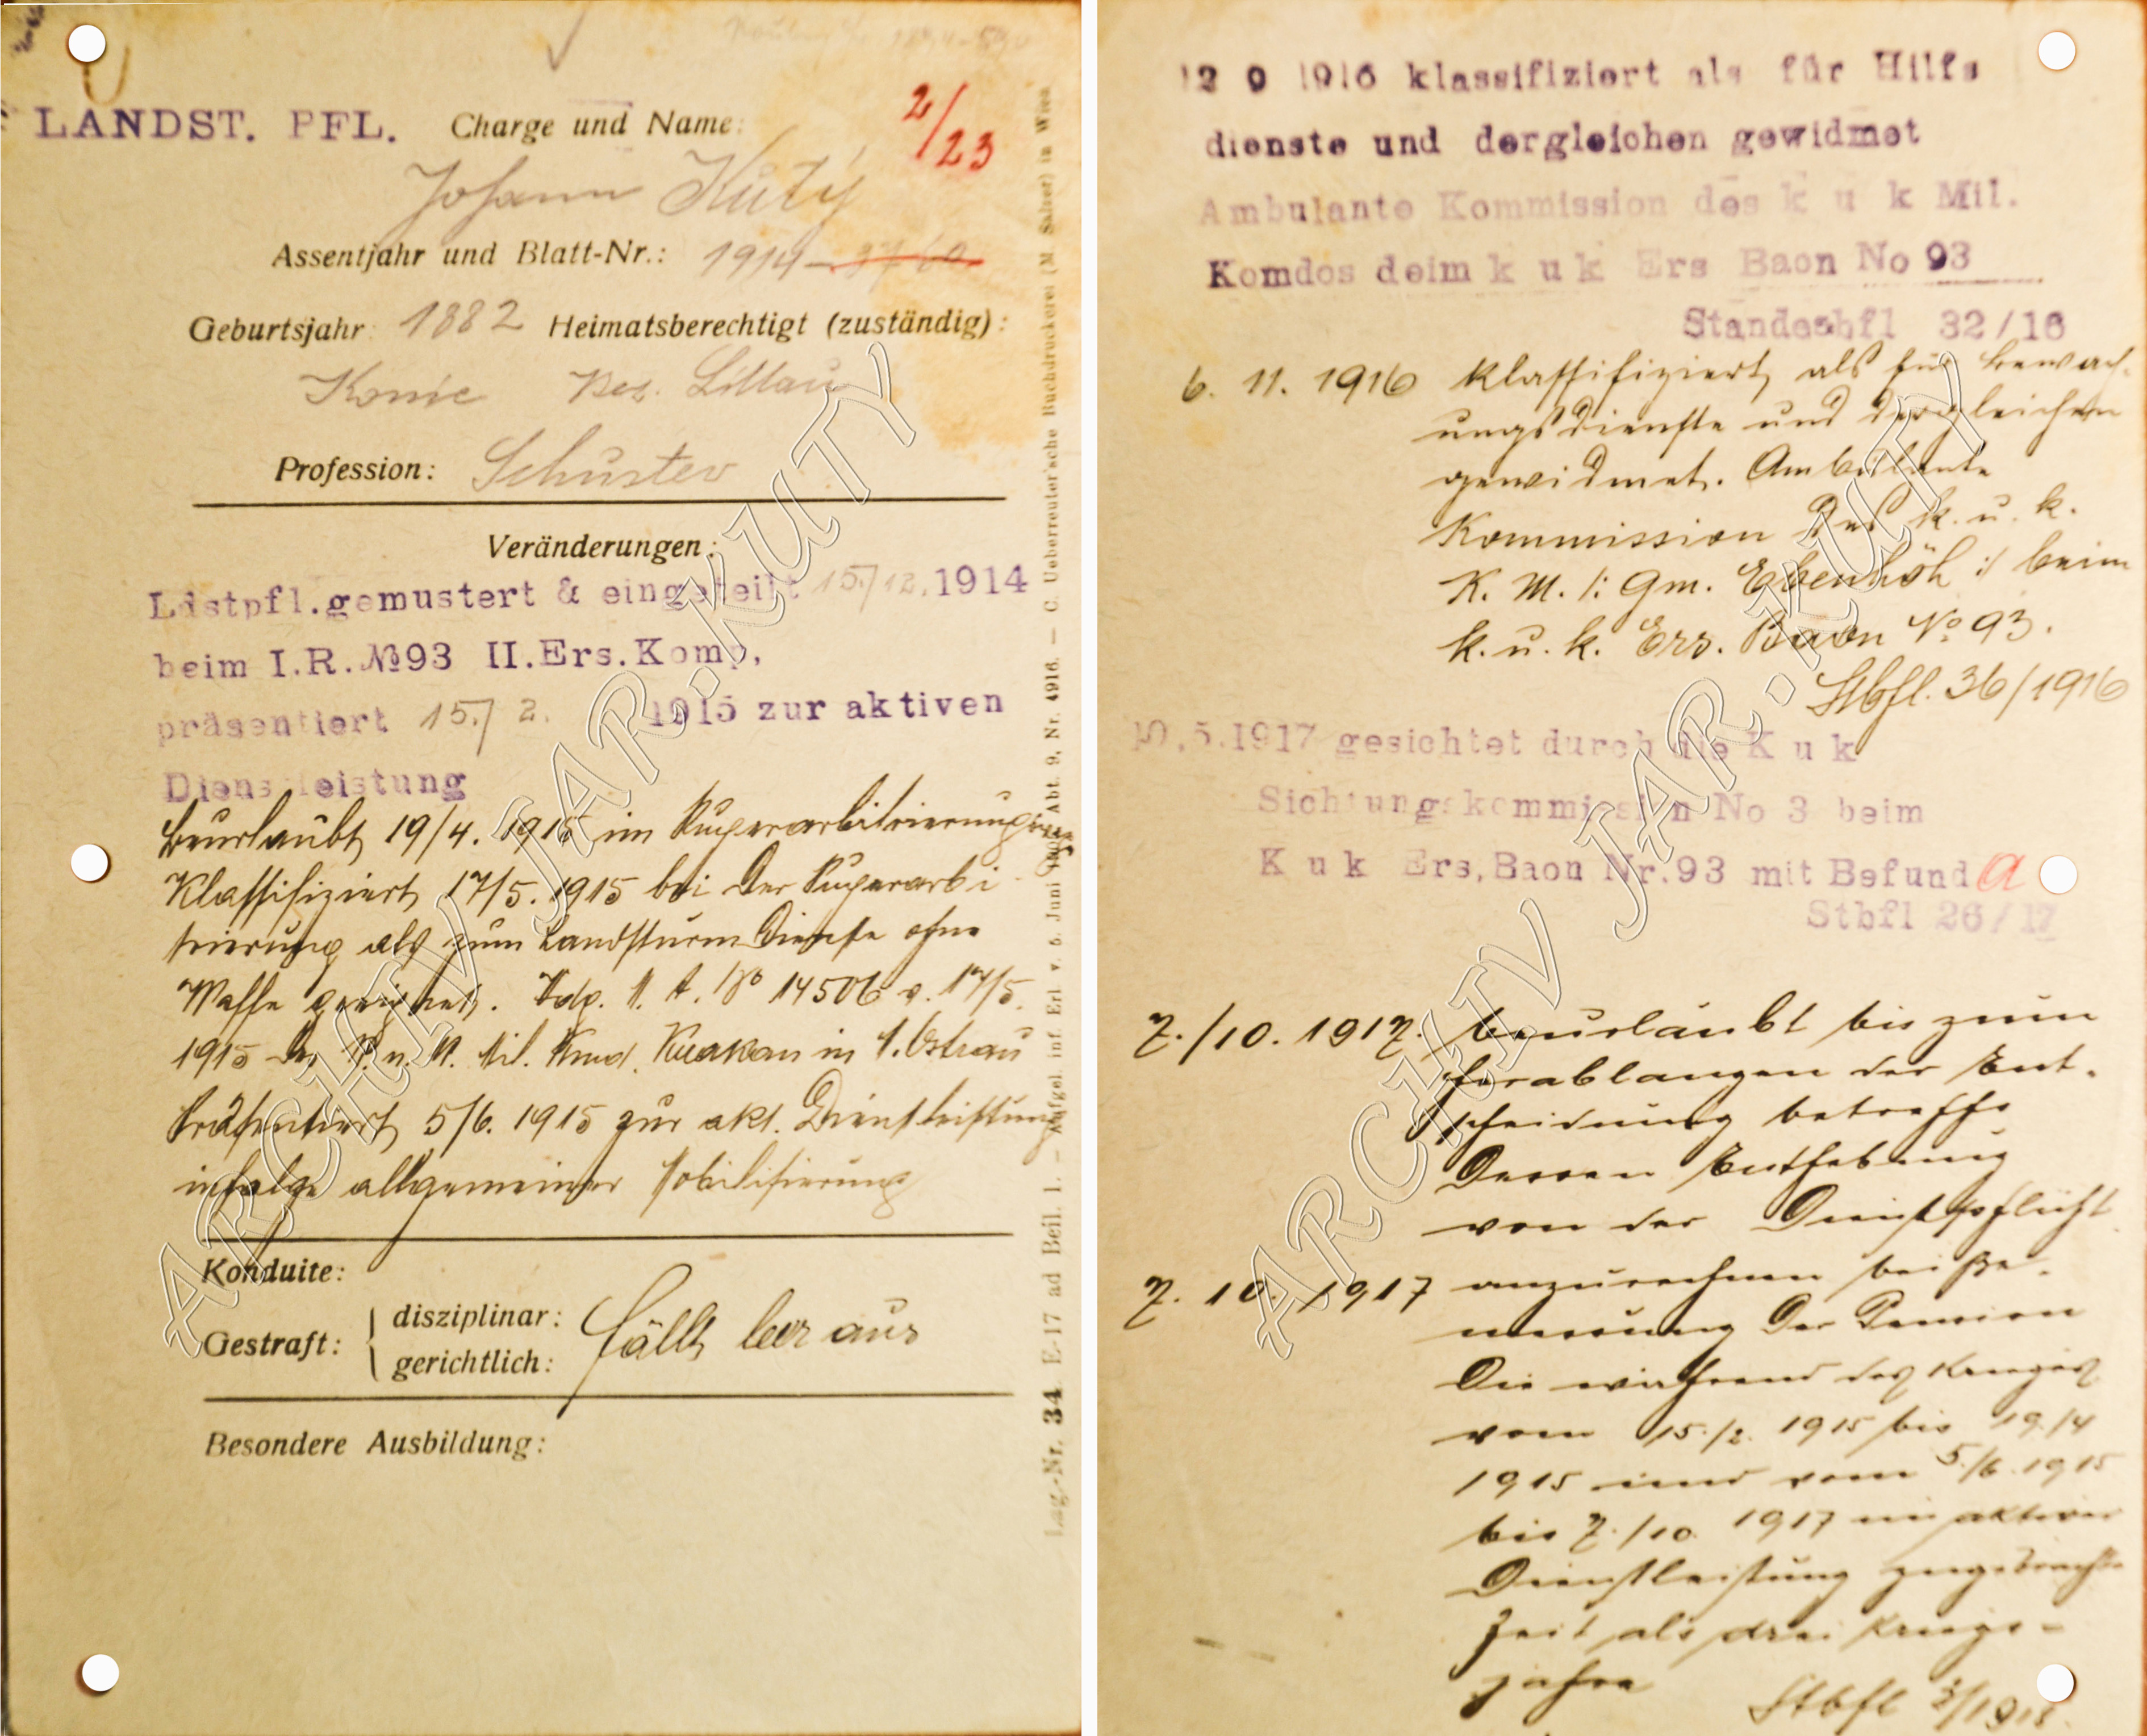 LANDST. PFL. Charge und Name:
2/23
Johann Kutý
Assentjahr und Blatt-Nr.: 1914
Geburtsjahr: 1882 Heimatsberechtigt (zuständig):
Konic Bez. Littau
Profession: Schuster
Veränderungen:
Ldstpfl.gemustert & eingeteilt 15./12.1914
beim I.R.№93 II.Ers.Komp,
präsentiert 15./2. 1915 zur aktiven
Dienstleistung
Beurlaubt 19/4. 1915 im Superarbitrierungswege
Klassifiziert 17/5. 1915 bei der Superarbi
trierung als zum Landsturmdienste ohne
Waffe geeignet. Sdp. M. A. No 14506 v. 17/5.
1915 des K. u. K. Mil. Kmd. Krakau in M. Ostrau
Präsentiert 5/6. 1915 zur akt. Dienstleistung
infolge allgemeiner Mobilisierung
Konduite:
Gestraft: disziplinar:
gerichtlich:
fällt leer aus
Besondere Ausbildung:
Lag.-Nr. 34 E-17 ad Beil. 1. — Aufgel. inf. Erl. v. 5. Juni Abt. 9, Nr. 4916. — C. Ueberreuter'sche Buchdruckerei (M. Salzer) in Wien
ARCHIV JAR.KUTY
12 9 1916 klassifiziert als für Hilfs
dienste und dergleichen gewidmet
Ambulante Kommission des k u k Mil.
Komdos deim k u k Ers Baon No 93
Standesbfl 32/16
6. 11. 1916 klassifiziert als für Bewach-
ungsdienste und dergleichen
gewidmet. Ambulante
Kommission des k. u. k.
K. M. /: Gm. Ebenhöh :/ beim
k. u. k. Ers. Baon No 93.
Stbfl. 36/1916
10.5.1917 gesichtet durch die K u k
Sichtungskommission No 3 beim
K u k Ers,Baon Nr.93 mit Befund a
Stbfl 26/17
7./10. 1917. beurlaubt bis zum
Herablangen der Ent-
scheidung betreffs
dessen Enthebung
von der Dienstpflicht
7. 10. 1917 anzurechnen bei Be-
messung der Pension
die während des Krieges
vom 15./2. 1915 bis 19./4
1915 und vom 5./6. 1915
bis 7./10. 1917 in aktiver
Dienstleistung zugebrachte
Zeit als drei Kriegs-
jahre
Stbfl 3/1918
ARCHIV JAR.KUTY